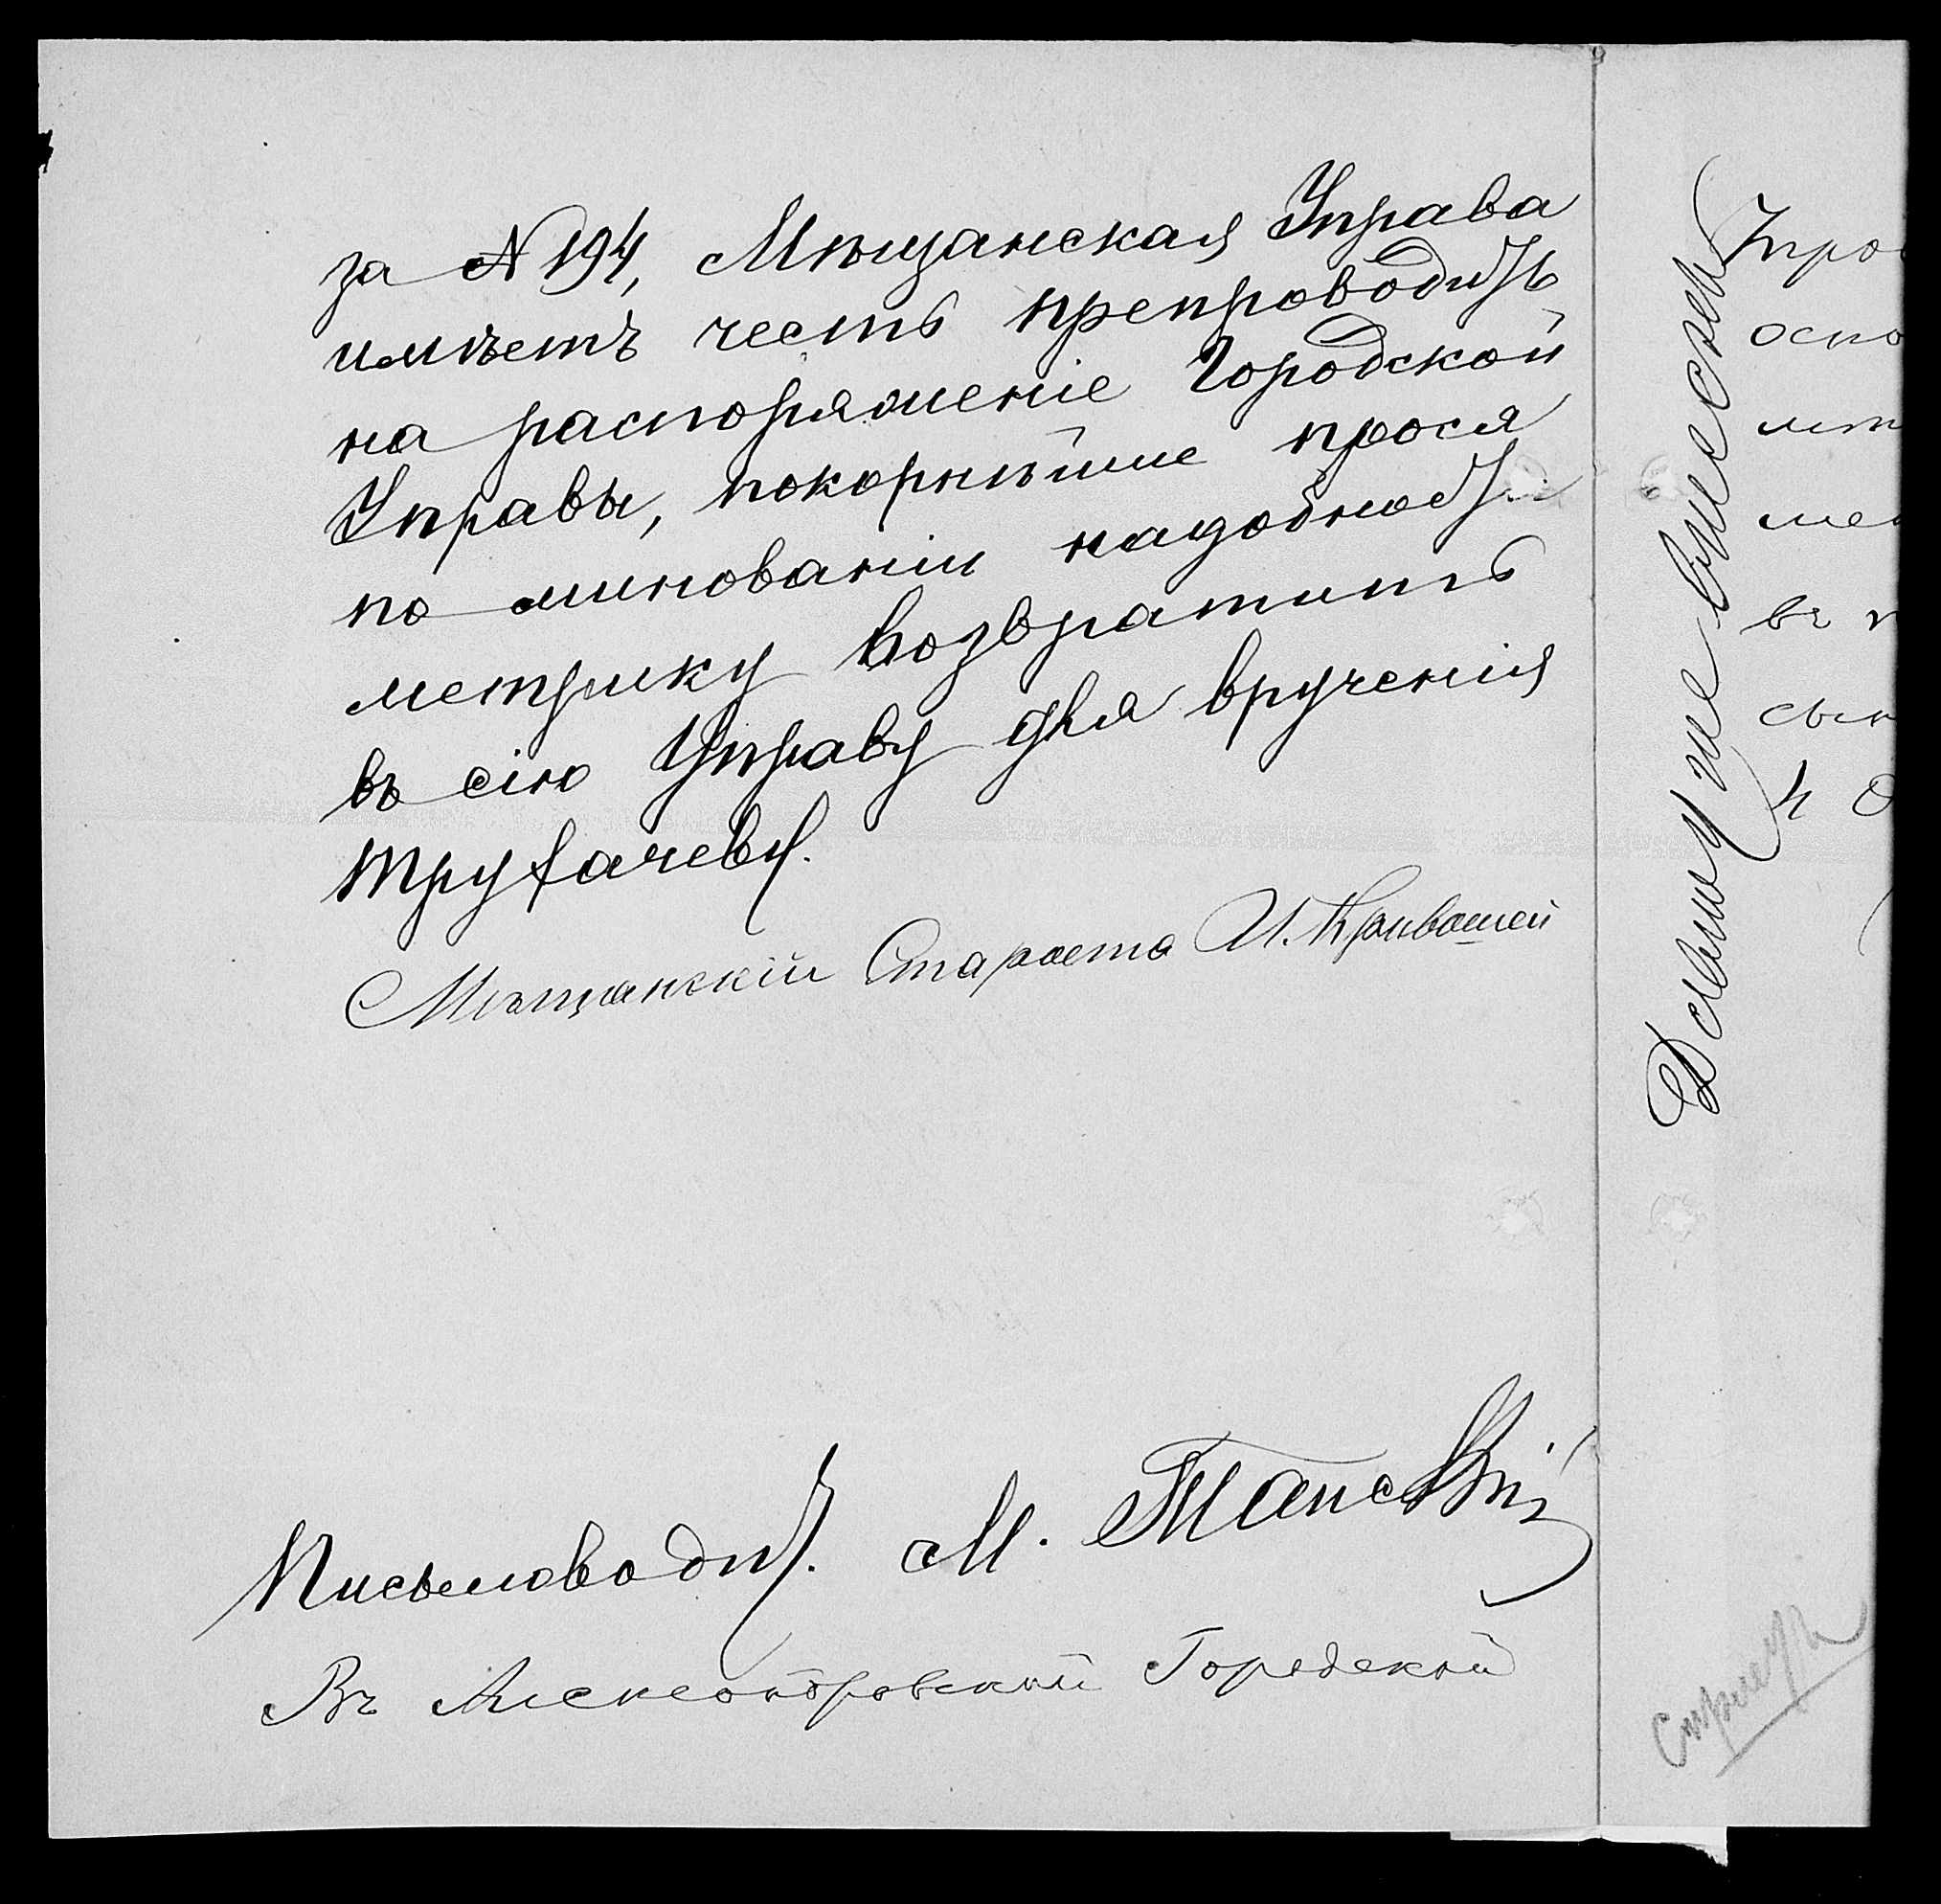 за № 194, Мѣщанская Управа
имѣетъ честь препроводить
на распоряженіе Городской
Управы, покорнѣйше прося
по минованіи надобности
метрику возвратить
въ сію Управу для врученія
Трубачеву.
Мѣщанскій Староста И. Кривошей
Письмовод. М.
Въ Александровскій Городской
въ